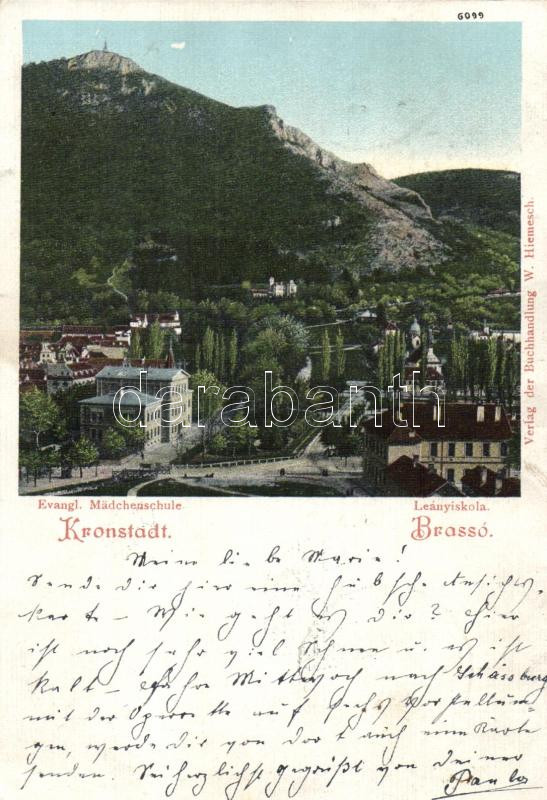 6099
Verlag der Buchhandlung W. Hiemesch.
darabanth
Evangl. Mädchenschule Leányiskola.
Kronstadt. Brassó.
Meine liebe Marie!
Sende dir hier eine hübsche Ansichts-
karte – Wie geht es dir? Hier
ist noch sehr viel Schnee u. es ist
kalt – fahre Mittwoch nach Schässburg
mit der Operette auf sechs Vorstellun-
gen, werde dir von dort auch eine Karte
senden. Sei herzlichst gegrüßt von deiner